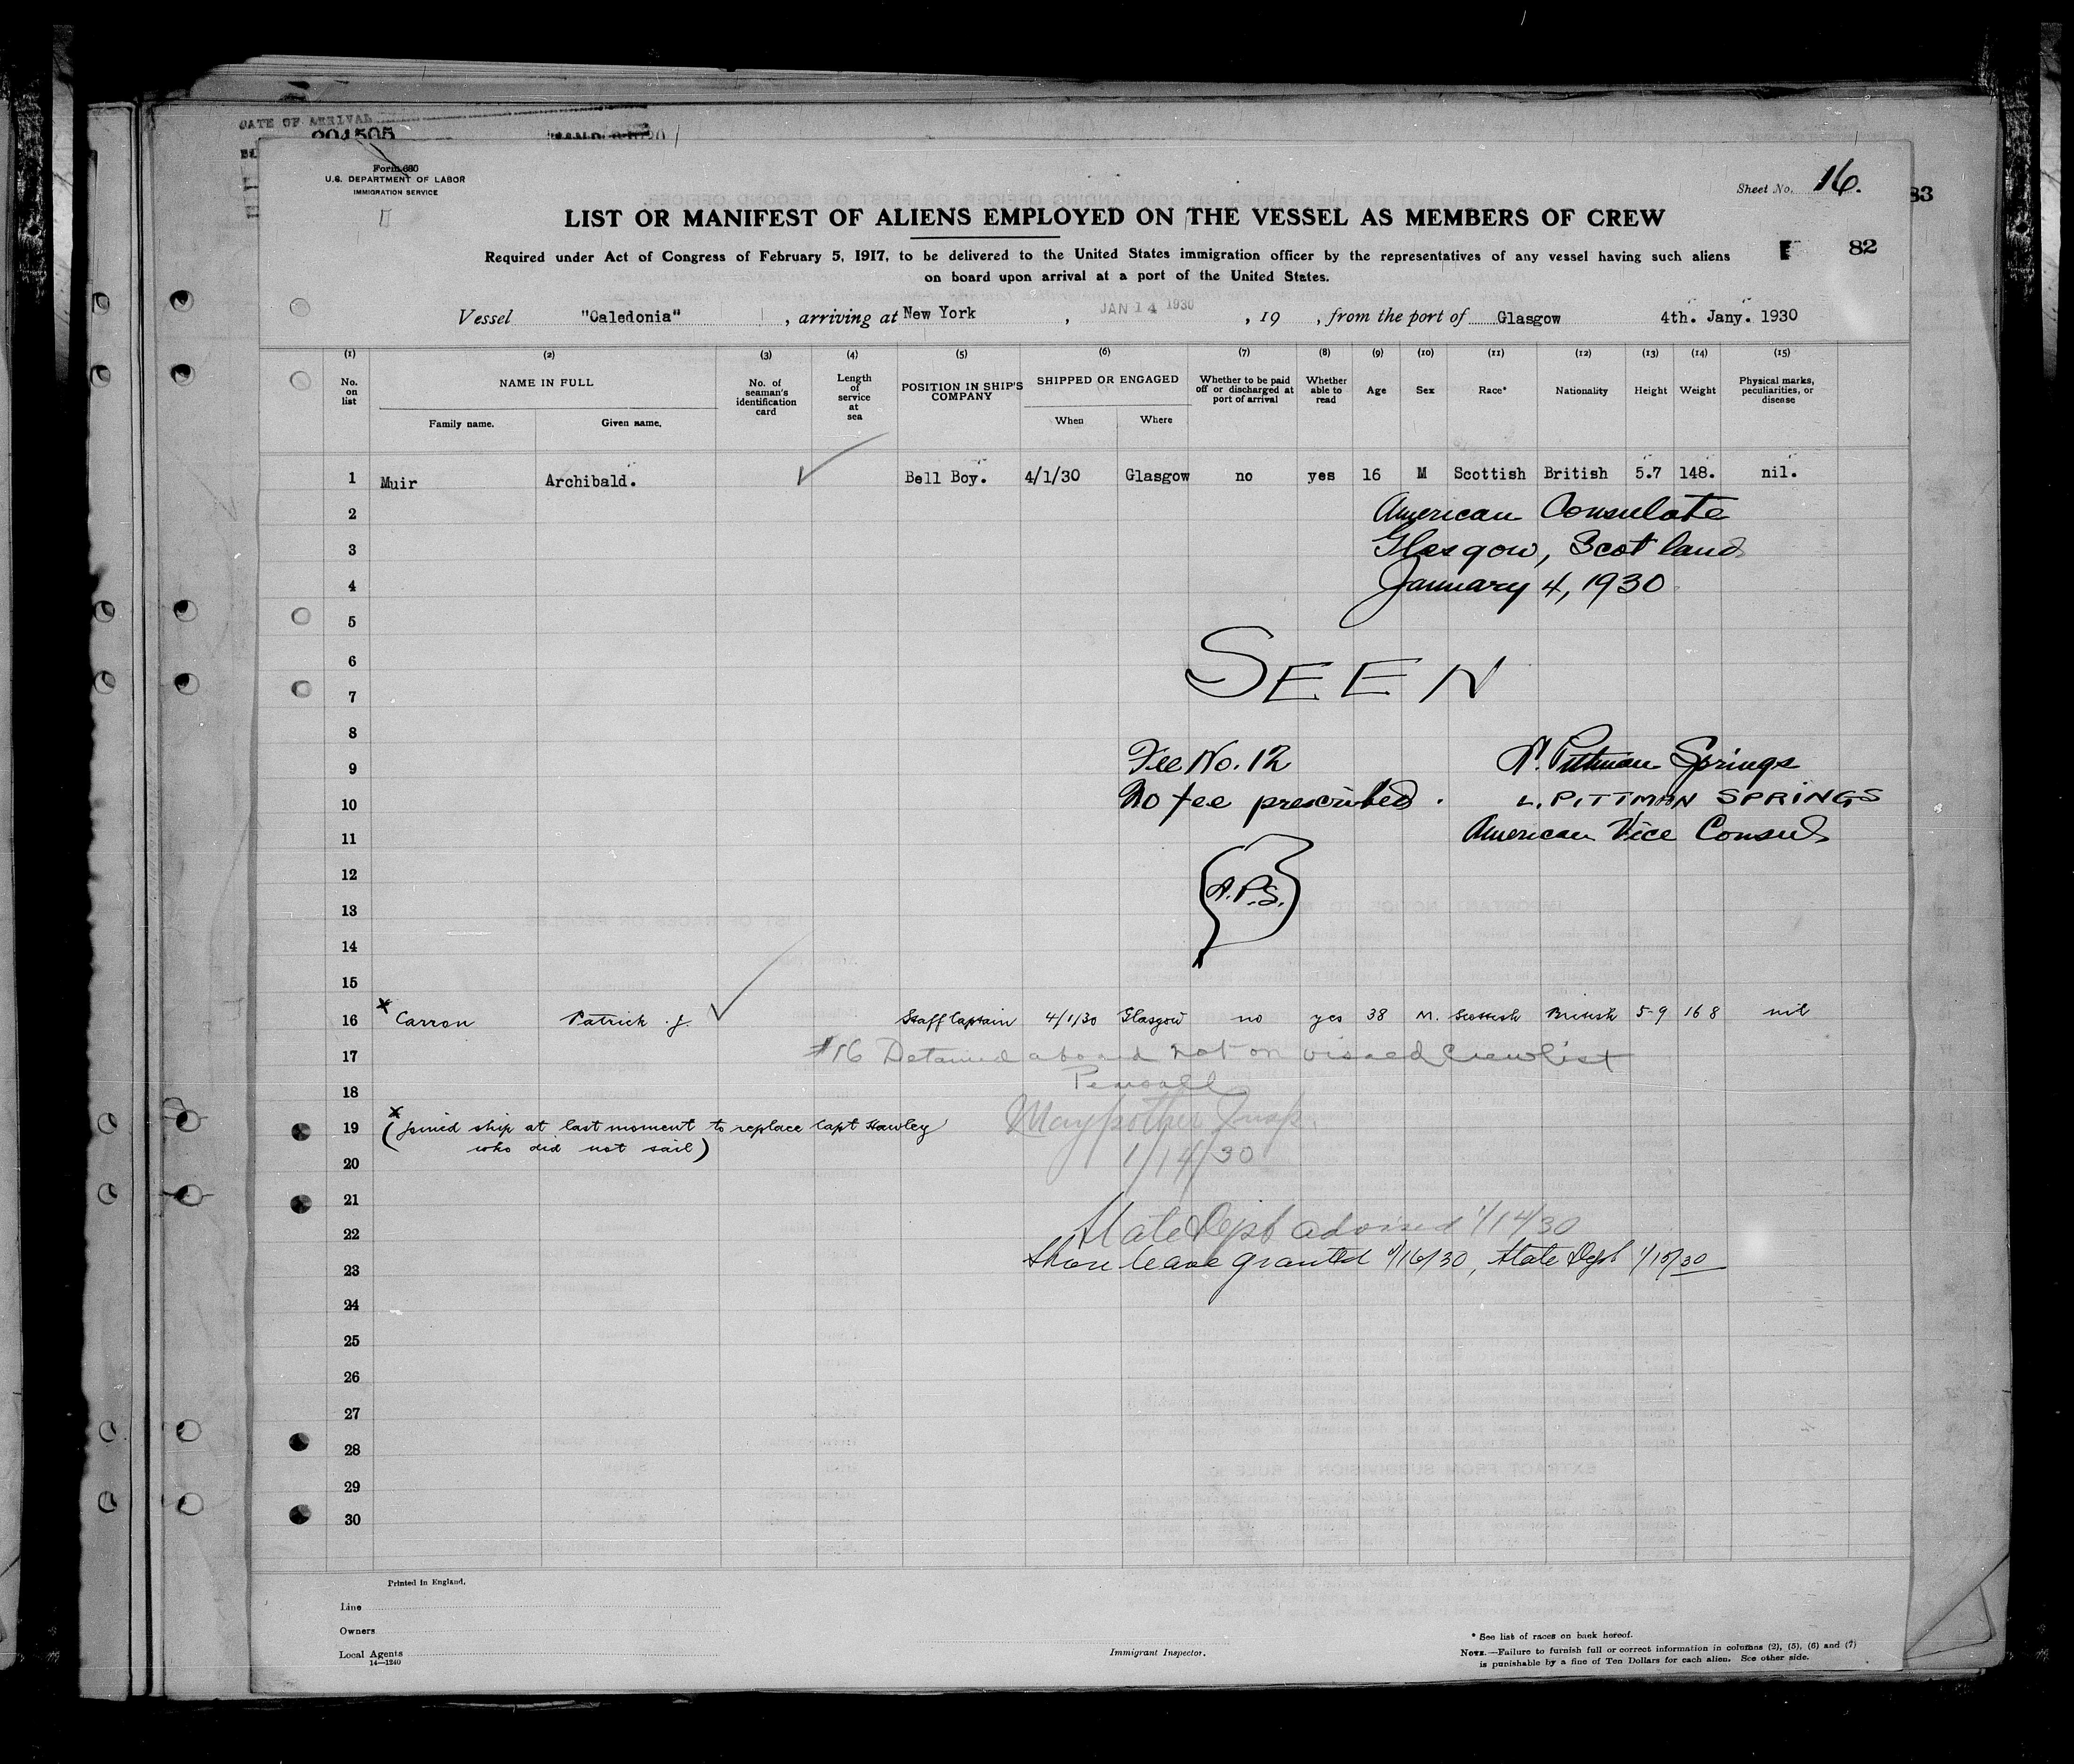 DATE OF ARRIVAL
Form 680
U.S. DEPARTMENT OF LABOR
IMMIGRATION SERVICE
Sheet No. 16.
83
LIST OR MANIFEST OF ALIENS EMPLOYED ON THE VESSEL AS MEMBERS OF CREW
82
Required under Act of Congress of February 5, 1917, to be delivered to the United States immigration officer by the representatives of any vessel having such aliens
on board upon arrival at a port of the United States.
Vessel "Caledonia", arriving at New York, JAN 14 1930, 19, from the port of Glasgow 4th. Jany. 1930
(1) (2) (3) (4) (5) (6) (7) (8) (9) (10) (11) (12) (13) (14) (15)
No. on list NAME IN FULL Family name. Given name. No. of seaman's identification card Length of service at sea POSITION IN SHIP'S COMPANY SHIPPED OR ENGAGED When Where Whether to be paid off or discharged at port of arrival Whether able to read Age Sex Race* Nationality Height Weight Physical marks, peculiarities, or disease
1 Muir Archibald. Bell Boy. 4/1/30 Glasgow no yes 16 M Scottish British 5.7 148. nil.
2 American Consulate
3 Glasgow, Scotland
4 January 4, 1930
5
6 SEEN
7
8
9 Fee No. 12 Pittman Springs
10 No fee prescribed. L. PITTMAN SPRINGS
11 American Vice Consul
12 P.S.
13
14
15
16 x Carron Patrick J. Staff Captain 4/1/30 Glasgow no yes 38 M. Scottish British 5-9 168 nil
17 #16 Detained aboard not on visaed crew list
18
19 x (joined ship at last moment to replace Capt Hawley Insp.
who did not sail) 1/14/30
20
21
22 State Dept advised 1/14/30
23 Shore leave granted 1/16/30, State Dept 1/15/30
24
25
26
27
28
29
30
Printed in England.
Line
Owners
Local Agents
14—1240
Immigrant Inspector.
* See list of races on back hereof.
NOTE.—Failure to furnish full or correct information in columns (2), (5), (6) and (7)
is punishable by a fine of Ten Dollars for each alien. See other side.